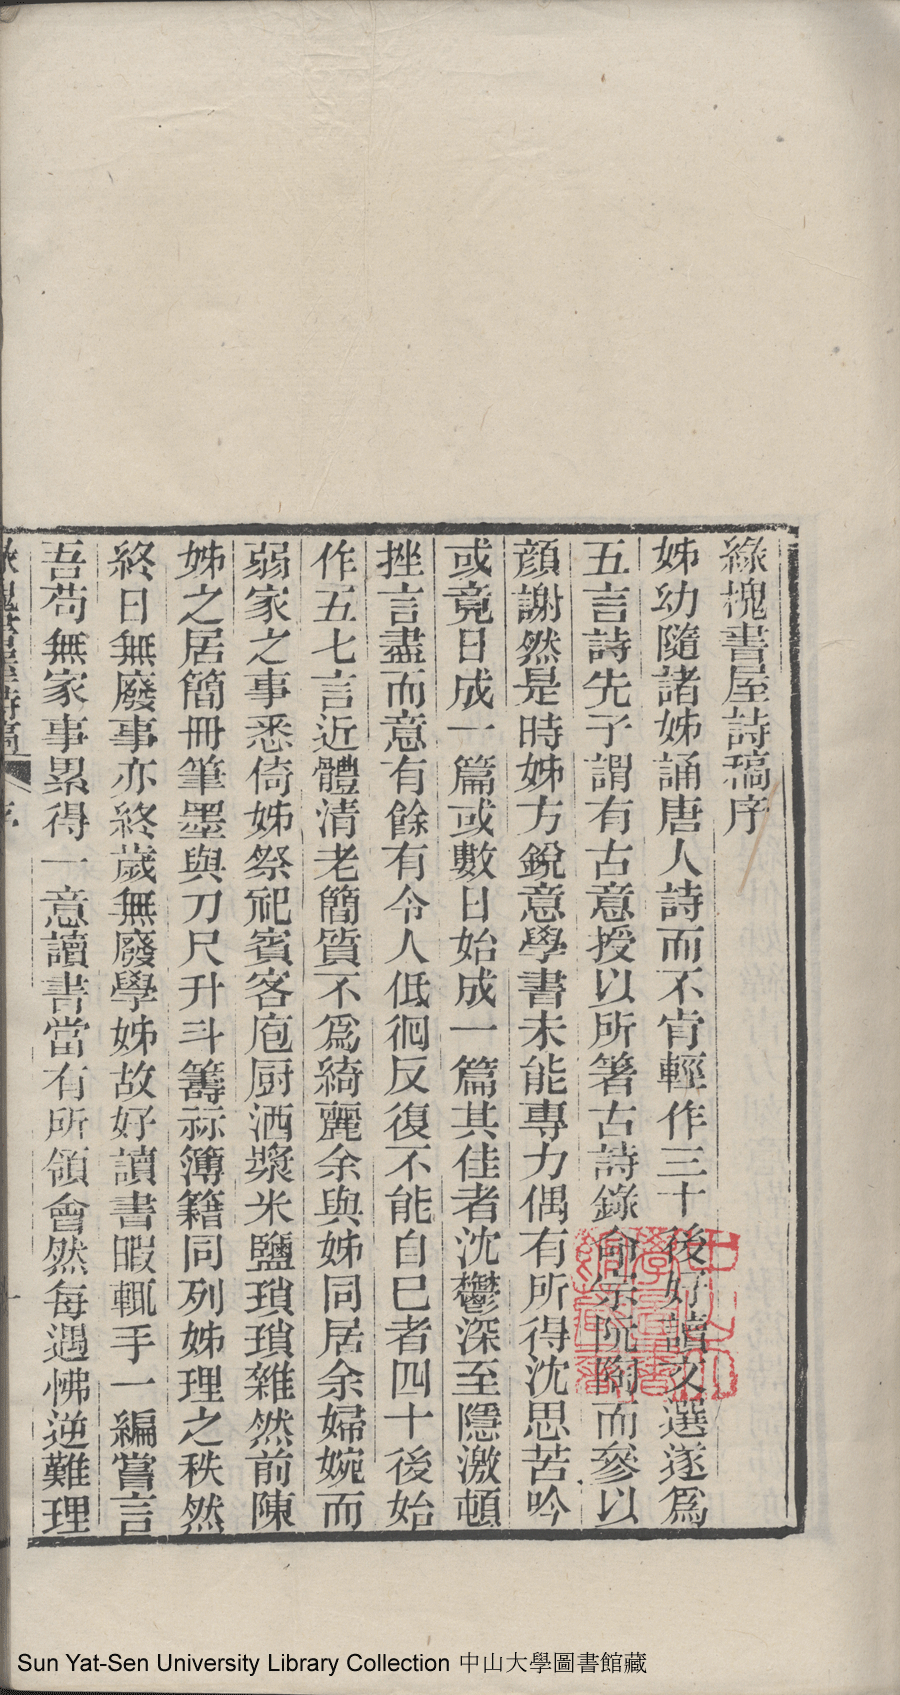 綠槐書屋詩稿序
姊幼隨諸姊誦唐人詩而不肯輕作三十後好讀文選遂爲
五言詩先子謂有古意授以所箸古詩錄俞宗阮陶而參以
顔謝然是時姊方銳意學書未能專力偶有所得沈思苦吟
或竟日成一篇或數日始成一篇其佳者沈鬱深至隱激頓
挫言盡而意有餘有令人低徊反復不能自已者四十後始
作五七言近體清老簡質不爲綺麗余與姊同居余婦婉而
弱家之事悉倚姊祭祀賓客庖厨酒漿米鹽瑣瑣雜然前陳
姊之居簡冊筆墨與刀尺升斗籌祘簿籍同列姊理之秩然
終日無廢事亦終歲無廢學姊故好讀書暇輒手一編嘗言
吾苟無家事累得一意讀書當有所領會然每遇怫逆難理
綠槐書屋詩稿 序 一
Sun Yat-Sen University Library Collection 中山大學圖書館藏